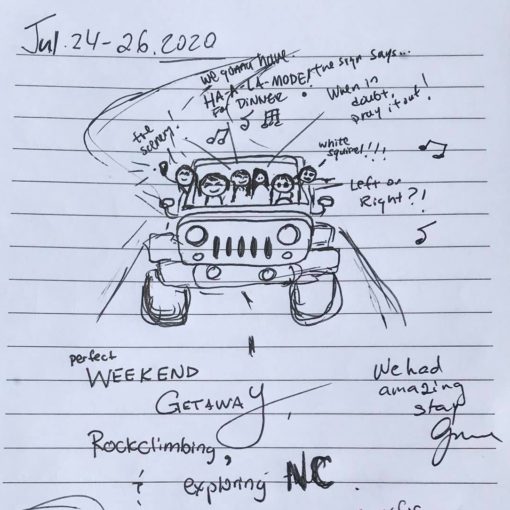 Jul. 24-26. 2020
we gonna have
HA-A-LA-MODE
FOR DINNER
the sign says...
When in
doubt,
pray it out!
the
scenery!
white
squirel!!!
Left or
Right?!
perfect
WEEKEND
GETAWAY,
We had
amazing
stay
Rockclimbing,
exploring NC.